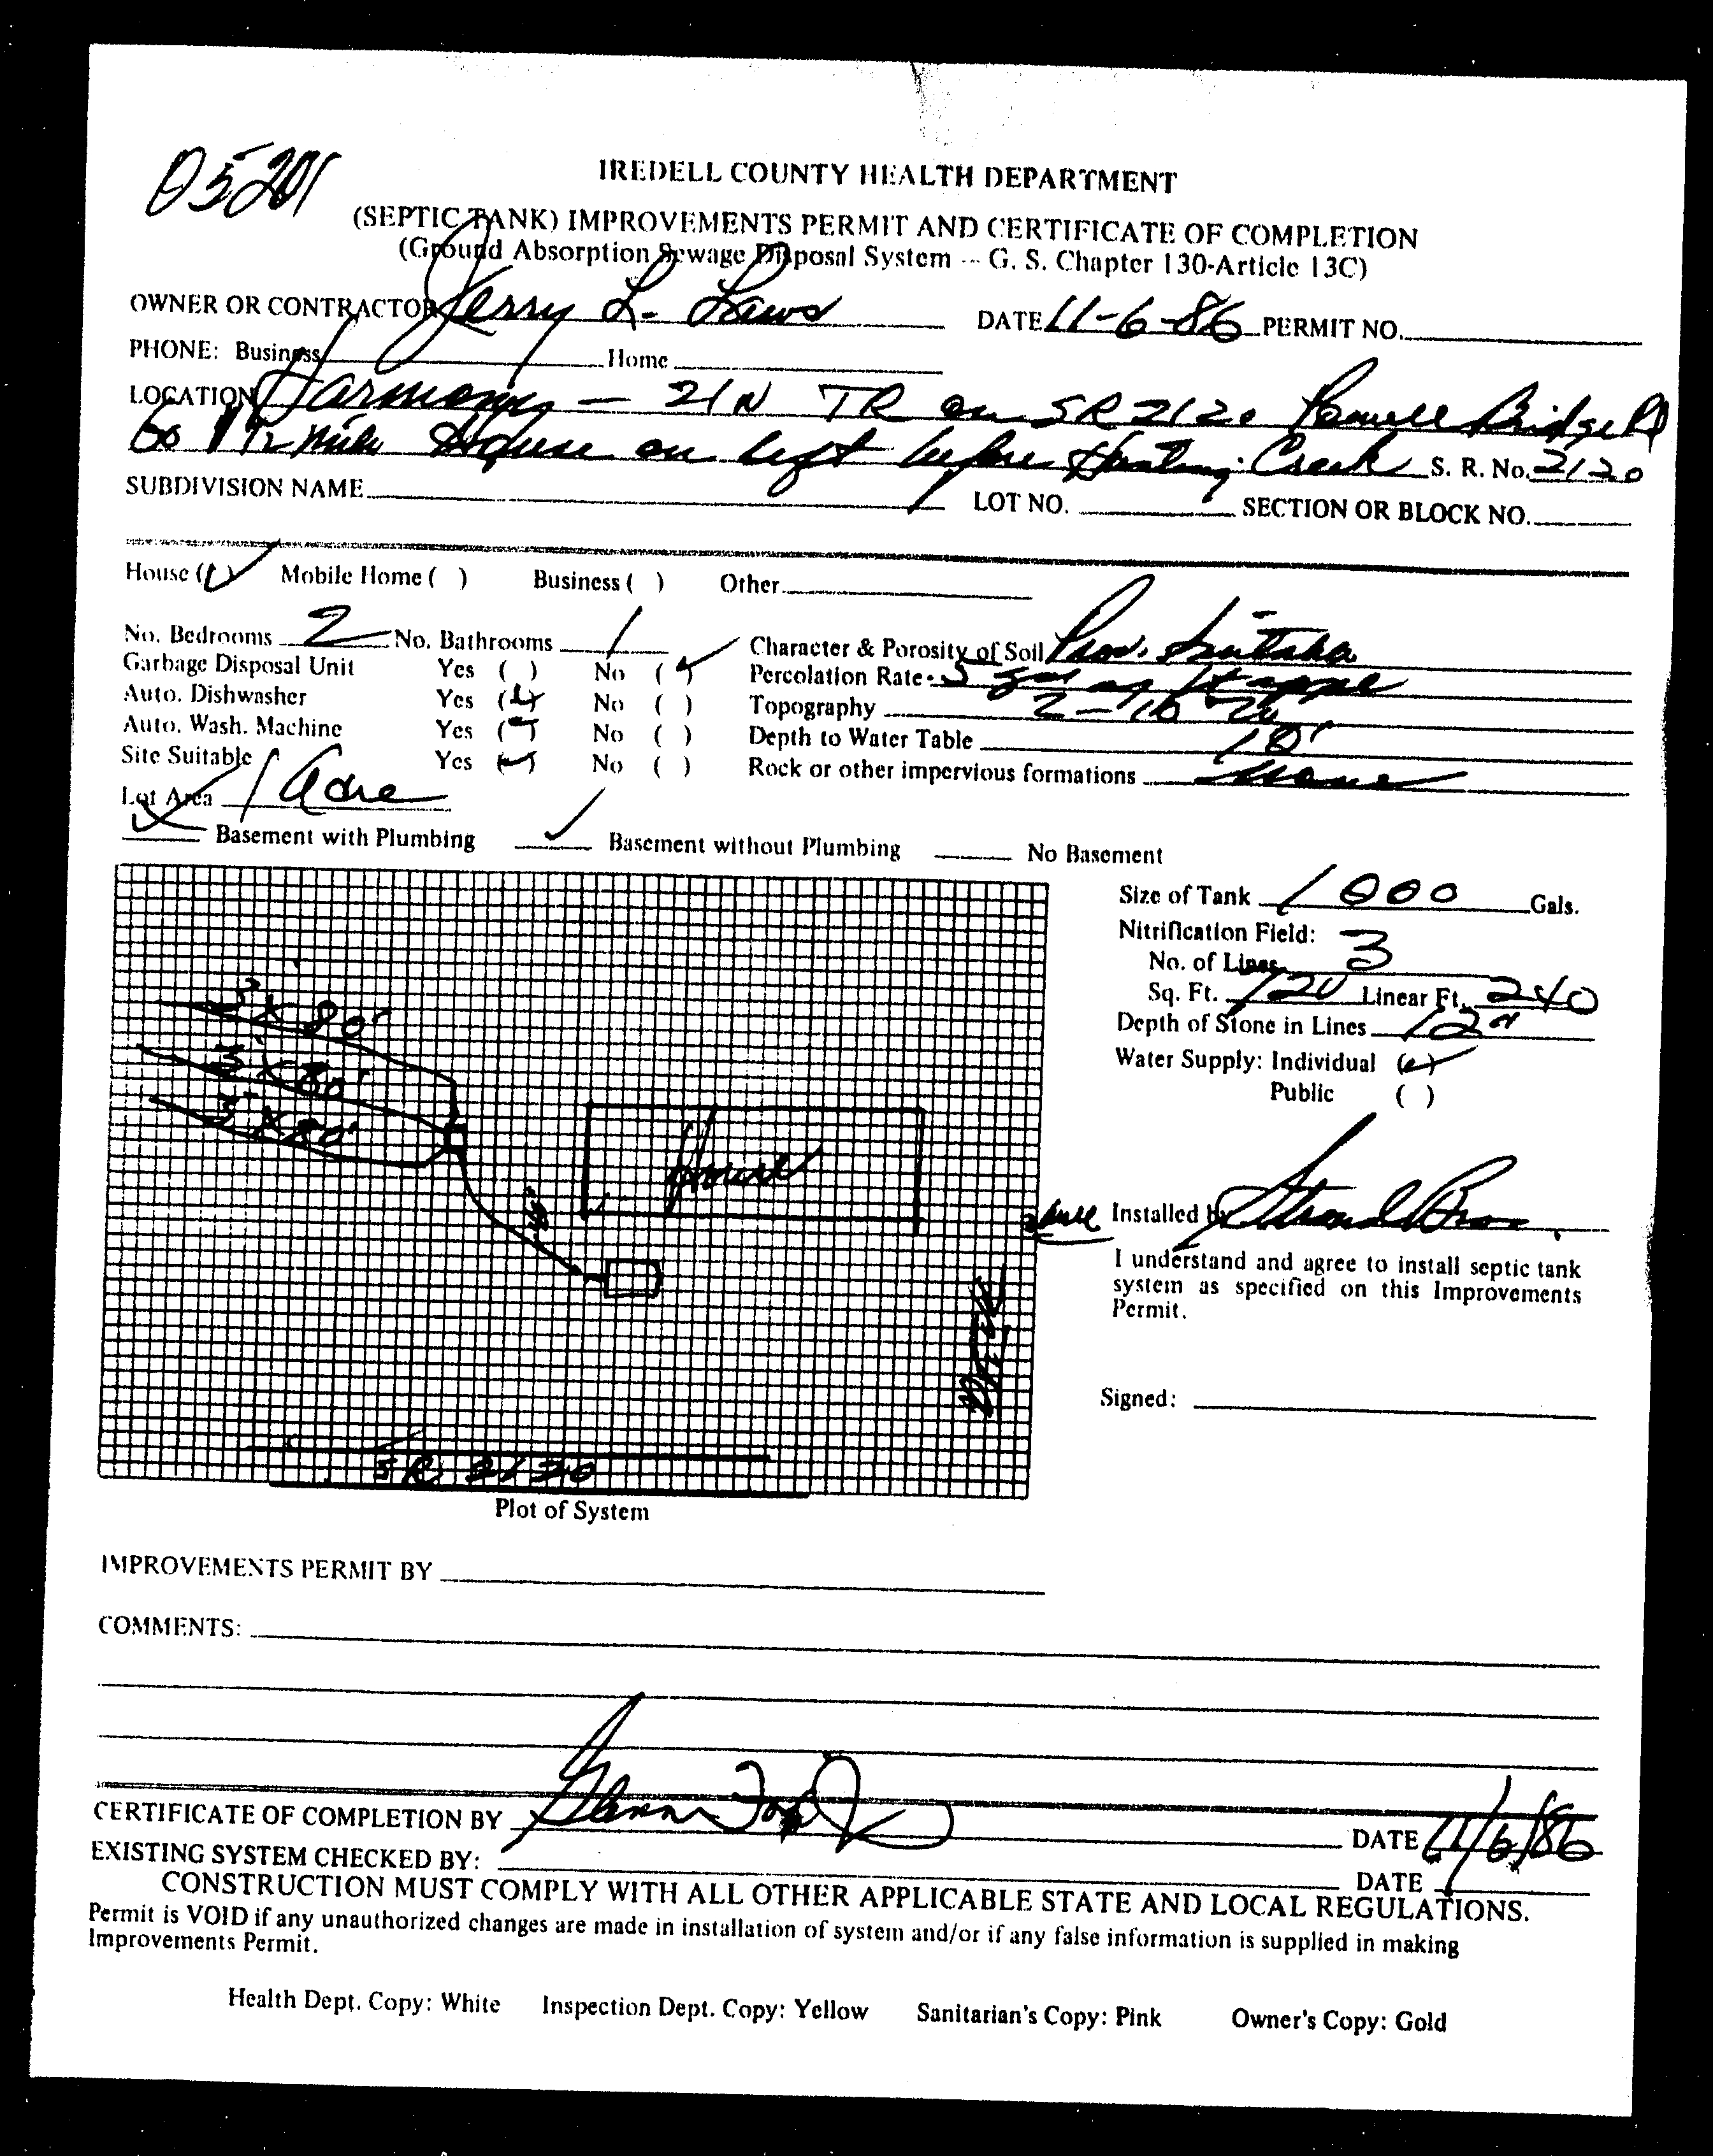 05201
IREDELL COUNTY HEALTH DEPARTMENT
(SEPTIC TANK) IMPROVEMENTS PERMIT AND CERTIFICATE OF COMPLETION
(Ground Absorption Sewage Disposal System -- G. S. Chapter 130-Article 13C)
OWNER OR CONTRACTOR Jerry L. Laws DATE 11-6-86 PERMIT NO.
PHONE: Business Home
LOCATION Harmony - 21N TR on SR 2120 Powell Bridge Rd
Go 1 1/2 mile House on left before Hunting Creek S. R. No. 2120
SUBDIVISION NAME LOT NO. SECTION OR BLOCK NO.
House ( ) Mobile Home ( ) Business ( ) Other
No. Bedrooms 2 No. Bathrooms 1 Character & Porosity of Soil Prov.
Garbage Disposal Unit Yes ( ) No ( ) Percolation Rate
Auto. Dishwasher Yes ( ) No ( ) Topography 2-10%
Auto. Wash. Machine Yes ( ) No ( ) Depth to Water Table 10'
Site Suitable Yes ( ) No ( ) Rock or other impervious formations None
Lot Area 1 Acre
Basement with Plumbing Basement without Plumbing No Basement
Size of Tank 1000 Gals.
Nitrification Field:
No. of Lines 3
Sq. Ft. 720 Linear Ft. 240
Depth of Stone in Lines 12"
Water Supply: Individual ( )
Public ( )
3' X 80'
3' X 80'
3' X 80'
House
Installed by Stroud Bros.
I understand and agree to install septic tank
system as specified on this Improvements
Permit.
Signed:
SR 2120
Plot of System
IMPROVEMENTS PERMIT BY
COMMENTS:
CERTIFICATE OF COMPLETION BY DATE 11/6/86
EXISTING SYSTEM CHECKED BY: DATE
CONSTRUCTION MUST COMPLY WITH ALL OTHER APPLICABLE STATE AND LOCAL REGULATIONS.
Permit is VOID if any unauthorized changes are made in installation of system and/or if any false information is supplied in making
Improvements Permit.
Health Dept. Copy: White Inspection Dept. Copy: Yellow Sanitarian's Copy: Pink Owner's Copy: Gold